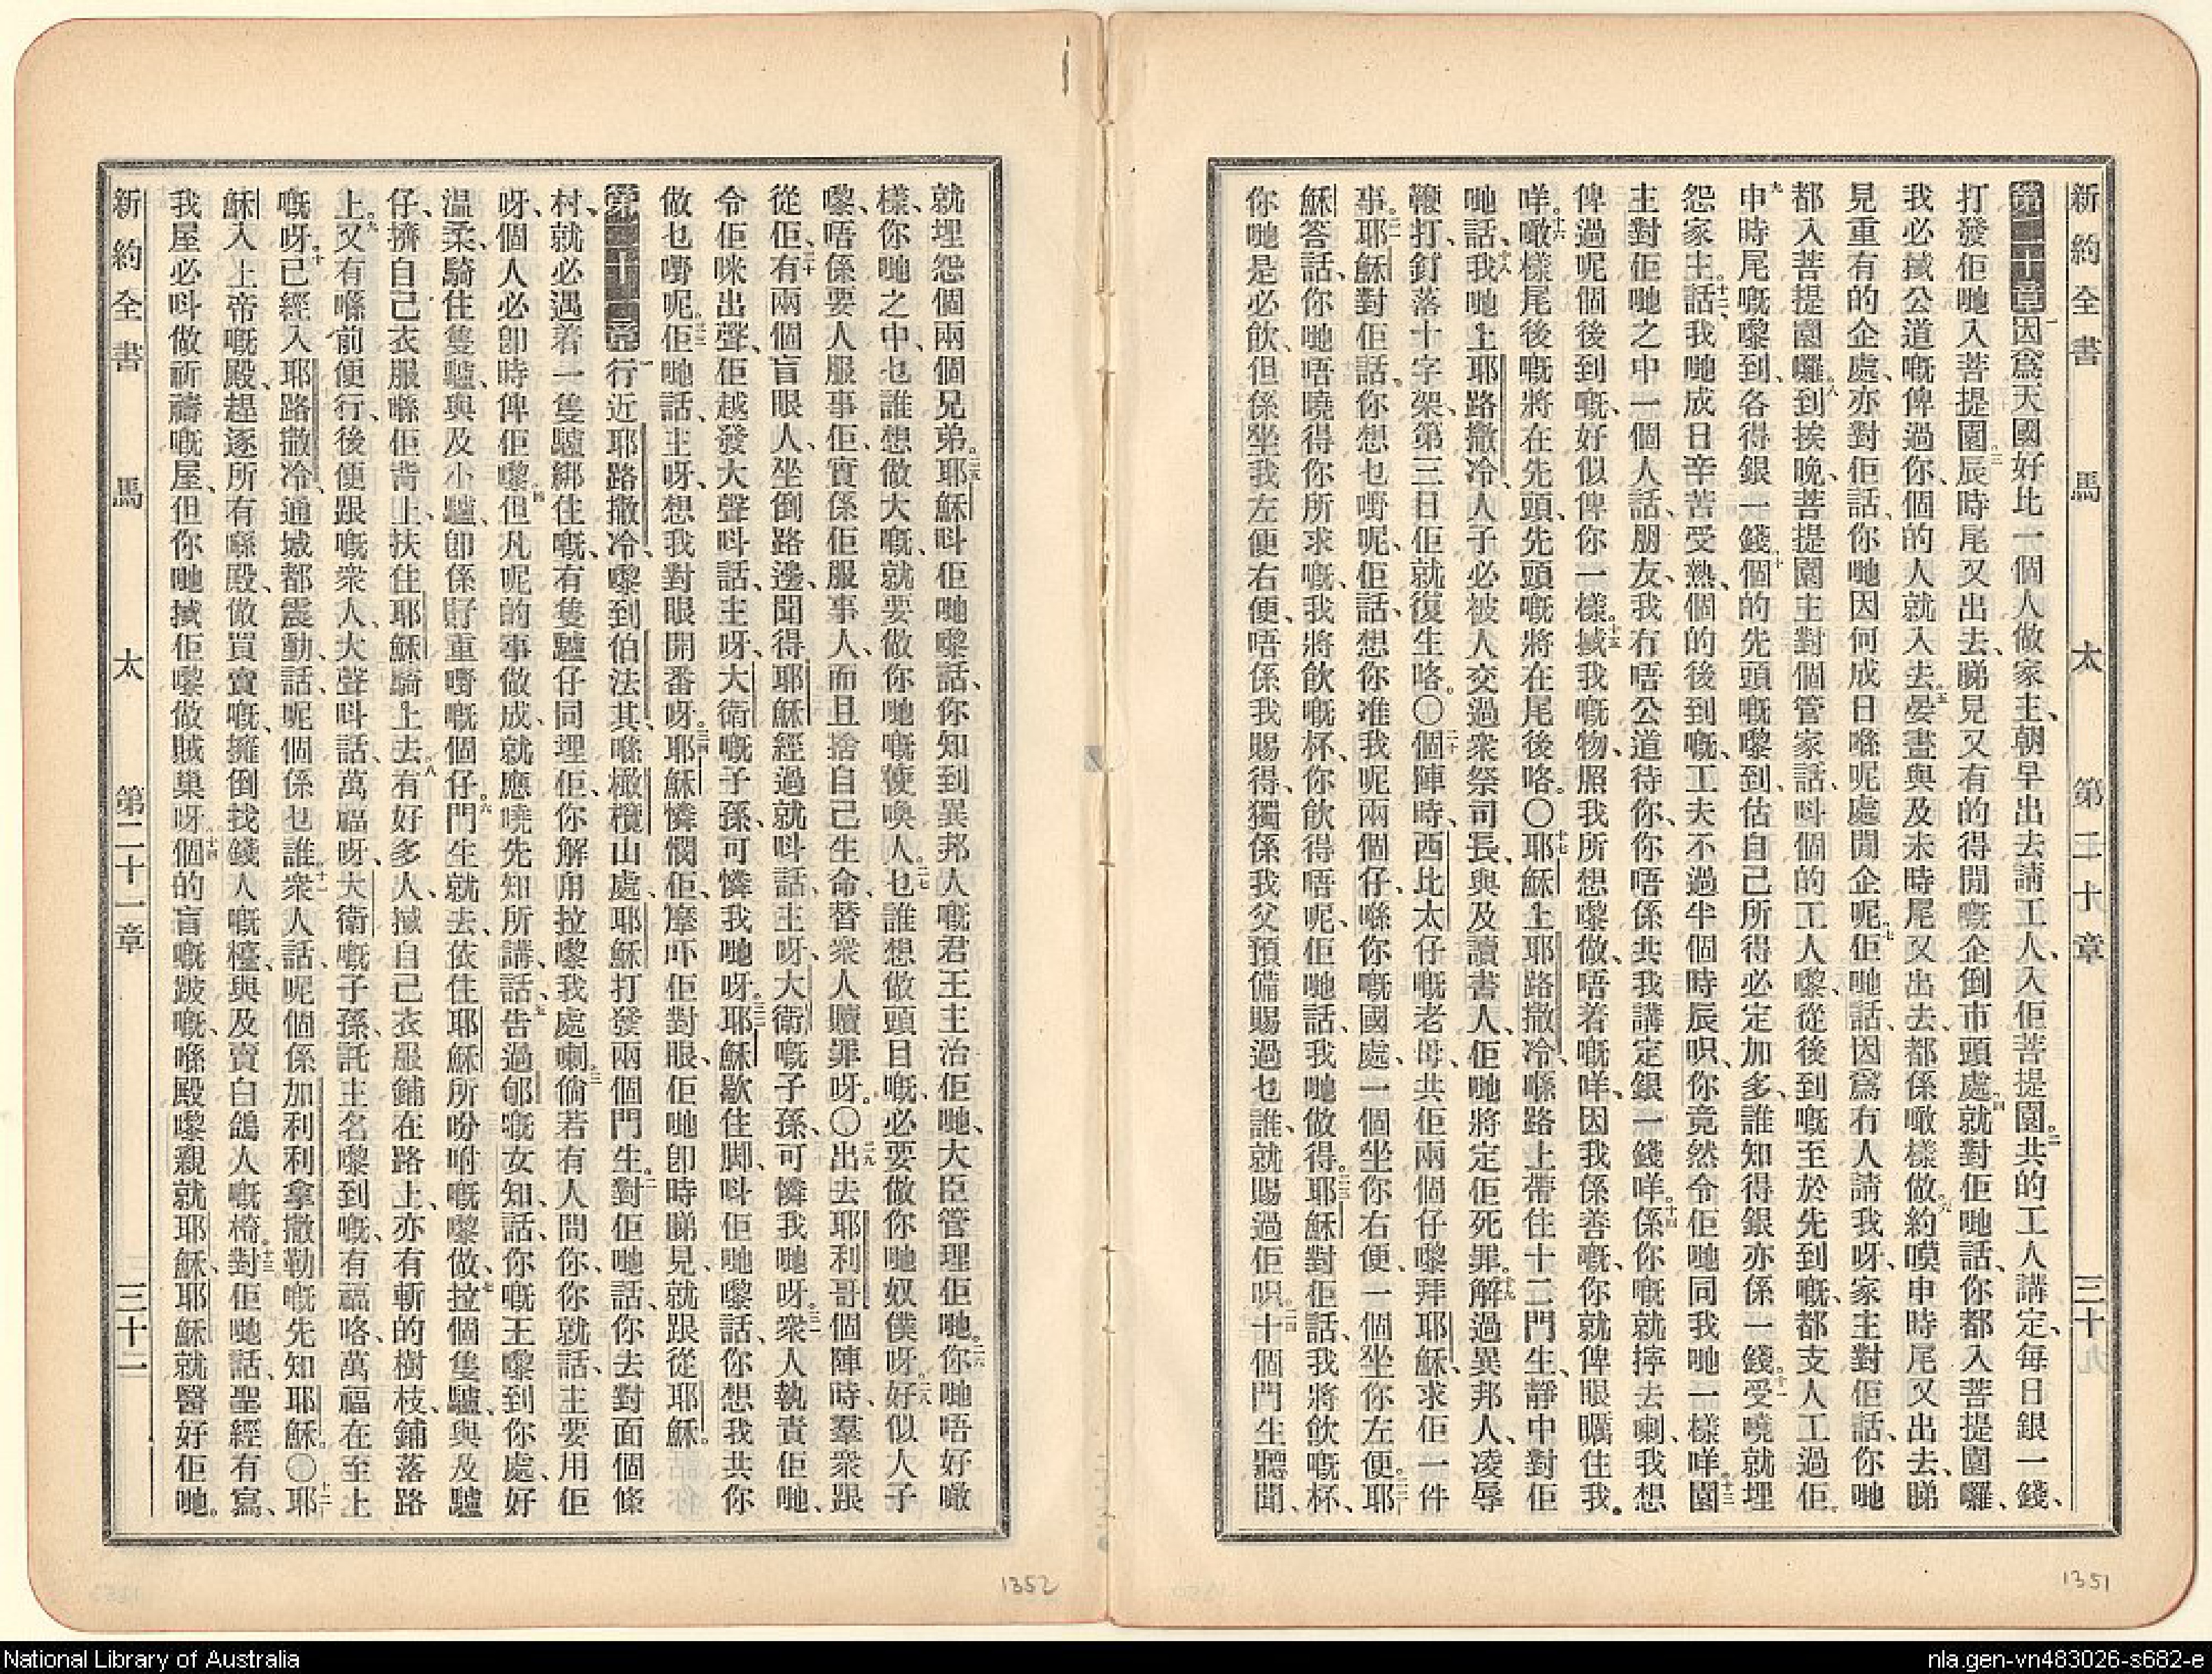 新約全書 馬太 第二十章 三十一
第二十章一因爲天國好比一個人做家主、朝早出去請工人、入佢菩提園。二共的工人講定、每日銀一錢、
打發佢哋入菩提園。三辰時尾又出去、睇見又有的得閒嘅企倒市頭處、四就對佢哋話、你都入菩提園囉、
我必搣公道嘅俾過你、個的人就入去。五晏晝與及未時尾又出去、都係噉樣做。六約嘆申時尾又出去、睇
見重有的企處、亦對佢話、你哋因何成日喺呢處閒企呢。七佢哋話、因爲有人請我呀、家主對佢話、你哋
都入菩提園囉。八到挨晚、菩提園主對個管家話、呌個的工人嚟、從後到嘅至於先到嘅、都支人工過佢。
九申時尾嘅嚟到、各得銀一錢。十個的先頭嘅嚟到、估自己所得必定加多、誰知得銀亦係一錢。十一受嘵就埋
怨家主。十二話、我哋成日辛苦受熱、個的後到嘅、工夫不過半個時辰呮、你竟然令佢哋同我哋一樣咩。十三園
主對佢哋之中一個人話、朋友、我有唔公道待你、你唔係共我講定銀一錢咩。十四係你嘅就擰去喇、我想
俾過呢個後到嘅、好似俾你一樣。十五搣我嘅物、照我所想嚟做、唔着嘅咩、因我係善嘅、你就俾眼矋住我
咩。十六噉樣尾後嘅將在先頭、先頭嘅將在尾後咯。〇十七耶穌上耶路撒冷、喺路上帶住十二門生、靜中對佢
哋話、十八我哋上耶路撒冷、人子必被人交過衆祭司長、與及讀書人、佢哋將定佢死罪。十九解過異邦人、凌辱
鞭打、釘落十字架、第三日佢就復生咯。〇二十個陣時、西比太仔嘅老母、共佢兩個仔嚟拜耶穌、求佢一件
事。二一耶穌對佢話、你想乜嘢呢、佢話、想你准我呢兩個仔、喺你嘅國處、一個坐你右便、一個坐你左便。二二耶
穌答話、你哋唔曉得你所求嘅、我將飮嘅杯、你飮得唔呢、佢哋話、我哋做得。二三耶穌對佢話、我將飮嘅杯、
你哋是必飮、但係坐我左便右便、唔係我賜得、獨係我父預備賜過乜誰、就賜過佢呮。二四十個門生聽聞、
就埋怨個兩個兄弟。二五耶穌呌佢哋嚟話、你知到異邦人嘅君王主治佢哋、大臣管理佢哋。二六你哋唔好噉
樣、你哋之中、乜誰想做大嘅、就要做你哋嘅使喚人。二七乜誰想做頭目嘅、必要做你哋奴僕呀。二八好似人子
嚟、唔係要人服事佢、實係佢服事人、而且捨自己生命、替衆人贖罪呀。〇二九出去耶利哥個陣時、羣衆跟
從佢、三十有兩個盲眼人、坐倒路邊、聞得耶穌經過、就呌話、主呀、大衛嘅子孫、可憐我哋呀。三一衆人執責佢哋、
令佢咪出聲、佢越發大聲呌話、主呀、大衛嘅子孫、可憐我哋呀。三二耶穌歇住脚、呌佢哋嚟話、你想我共你
做乜嘢呢。三三佢哋話、主呀、想我對眼開番呀。三四耶穌憐憫佢、摩吓佢對眼、佢哋卽時睇見、就跟從耶穌。
第二十一章一行近耶路撒冷、嚟到伯法其、喺橄欖山處、耶穌打發兩個門生。二對佢哋話、你去對面個條
村、就必遇着一隻驢綁住嘅、有隻驢仔同埋佢、你解甩拉嚟我處喇。三倘若有人問你、你就話、主要用佢
呀、個人必卽時俾佢嚟。四但凡呢的事做成、就應嘵先知所講、話、五告過郇嘅女知、話、你嘅王嚟到你處、好
温柔、騎住隻驢、與及小驢、卽係孖重嘢嘅個仔。六門生就去、依住耶穌所吩咐嘅嚟做、七拉個隻驢、與及驢
仔、擠自己衣服喺佢背上、扶住耶穌騎上去。八有好多人、搣自己衣服鋪在路上、亦有斬的樹枝、鋪落路
上。九又有喺前便行、後便跟嘅衆人、大聲呌話、萬福呀、大衛嘅子孫、託主名嚟到嘅、有福咯、萬福在至上
嘅呀。十已經入耶路撒冷、通城都震動、話、呢個係乜誰。十一衆人話、呢個係加利利拿撒勒嘅先知耶穌。〇十二耶
穌入上帝嘅殿、趕逐所有喺殿、做買賣嘅、擁倒找錢人嘅檯、與及賣白鴿人嘅椅。十三對佢哋話、聖經有寫、
我屋必呌做祈禱嘅屋、但你哋搣佢嚟做賊巢呀。十四個的盲嘅跛嘅、喺殿嚟親就耶穌、耶穌就醫好佢哋。
新約全書 馬太 第二十一章 三十二
1352
1351
National Library of Australia
nla.gen-vn483026-s682-e